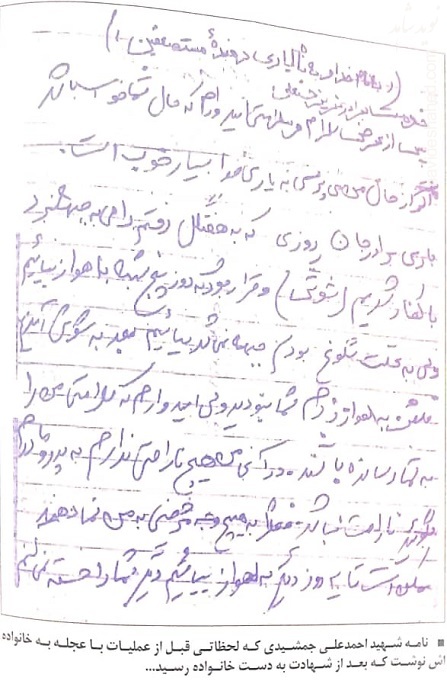 (بنام خدا و یاری دهندهٔ مستضعفین)
خدمت برادر عزیزم
پس از عرض سلام و سلامتی امیدوارم که حال شما خوب باشد
اگر از حال من می‌پرسی به یاری خدا بسیار خوب است.
باری برادر جان روزی که به هفتگل رفتم راهی جبهه نبرد
با کفار شدیم (شوش) و قرار بود که روز پنج شنبه به اهواز بیائیم
ولی به علت شلوغ بودن جبهه نشد بیائیم بعد به شوش
به اهواز زدم شما نبودید ولی امیدوارم که سلامتی من را
به شما رسانده باشند. در اکنون من هیچ ناراحتی ندارم به پدر و مادرم
بگویید ناراحت نباشد. فعلاً به هیچ وجه مرخصی به من نمی دهند
ممکن است تا یه روز دیگر به اهواز بیائیم دیگر شما را خسته نمی کنم
نامه شهید احمدعلی جمشیدی که لحظاتی قبل از عملیات با عجله به خانواده
اش نوشت که بعد از شهادت به دست خانواده رسید...